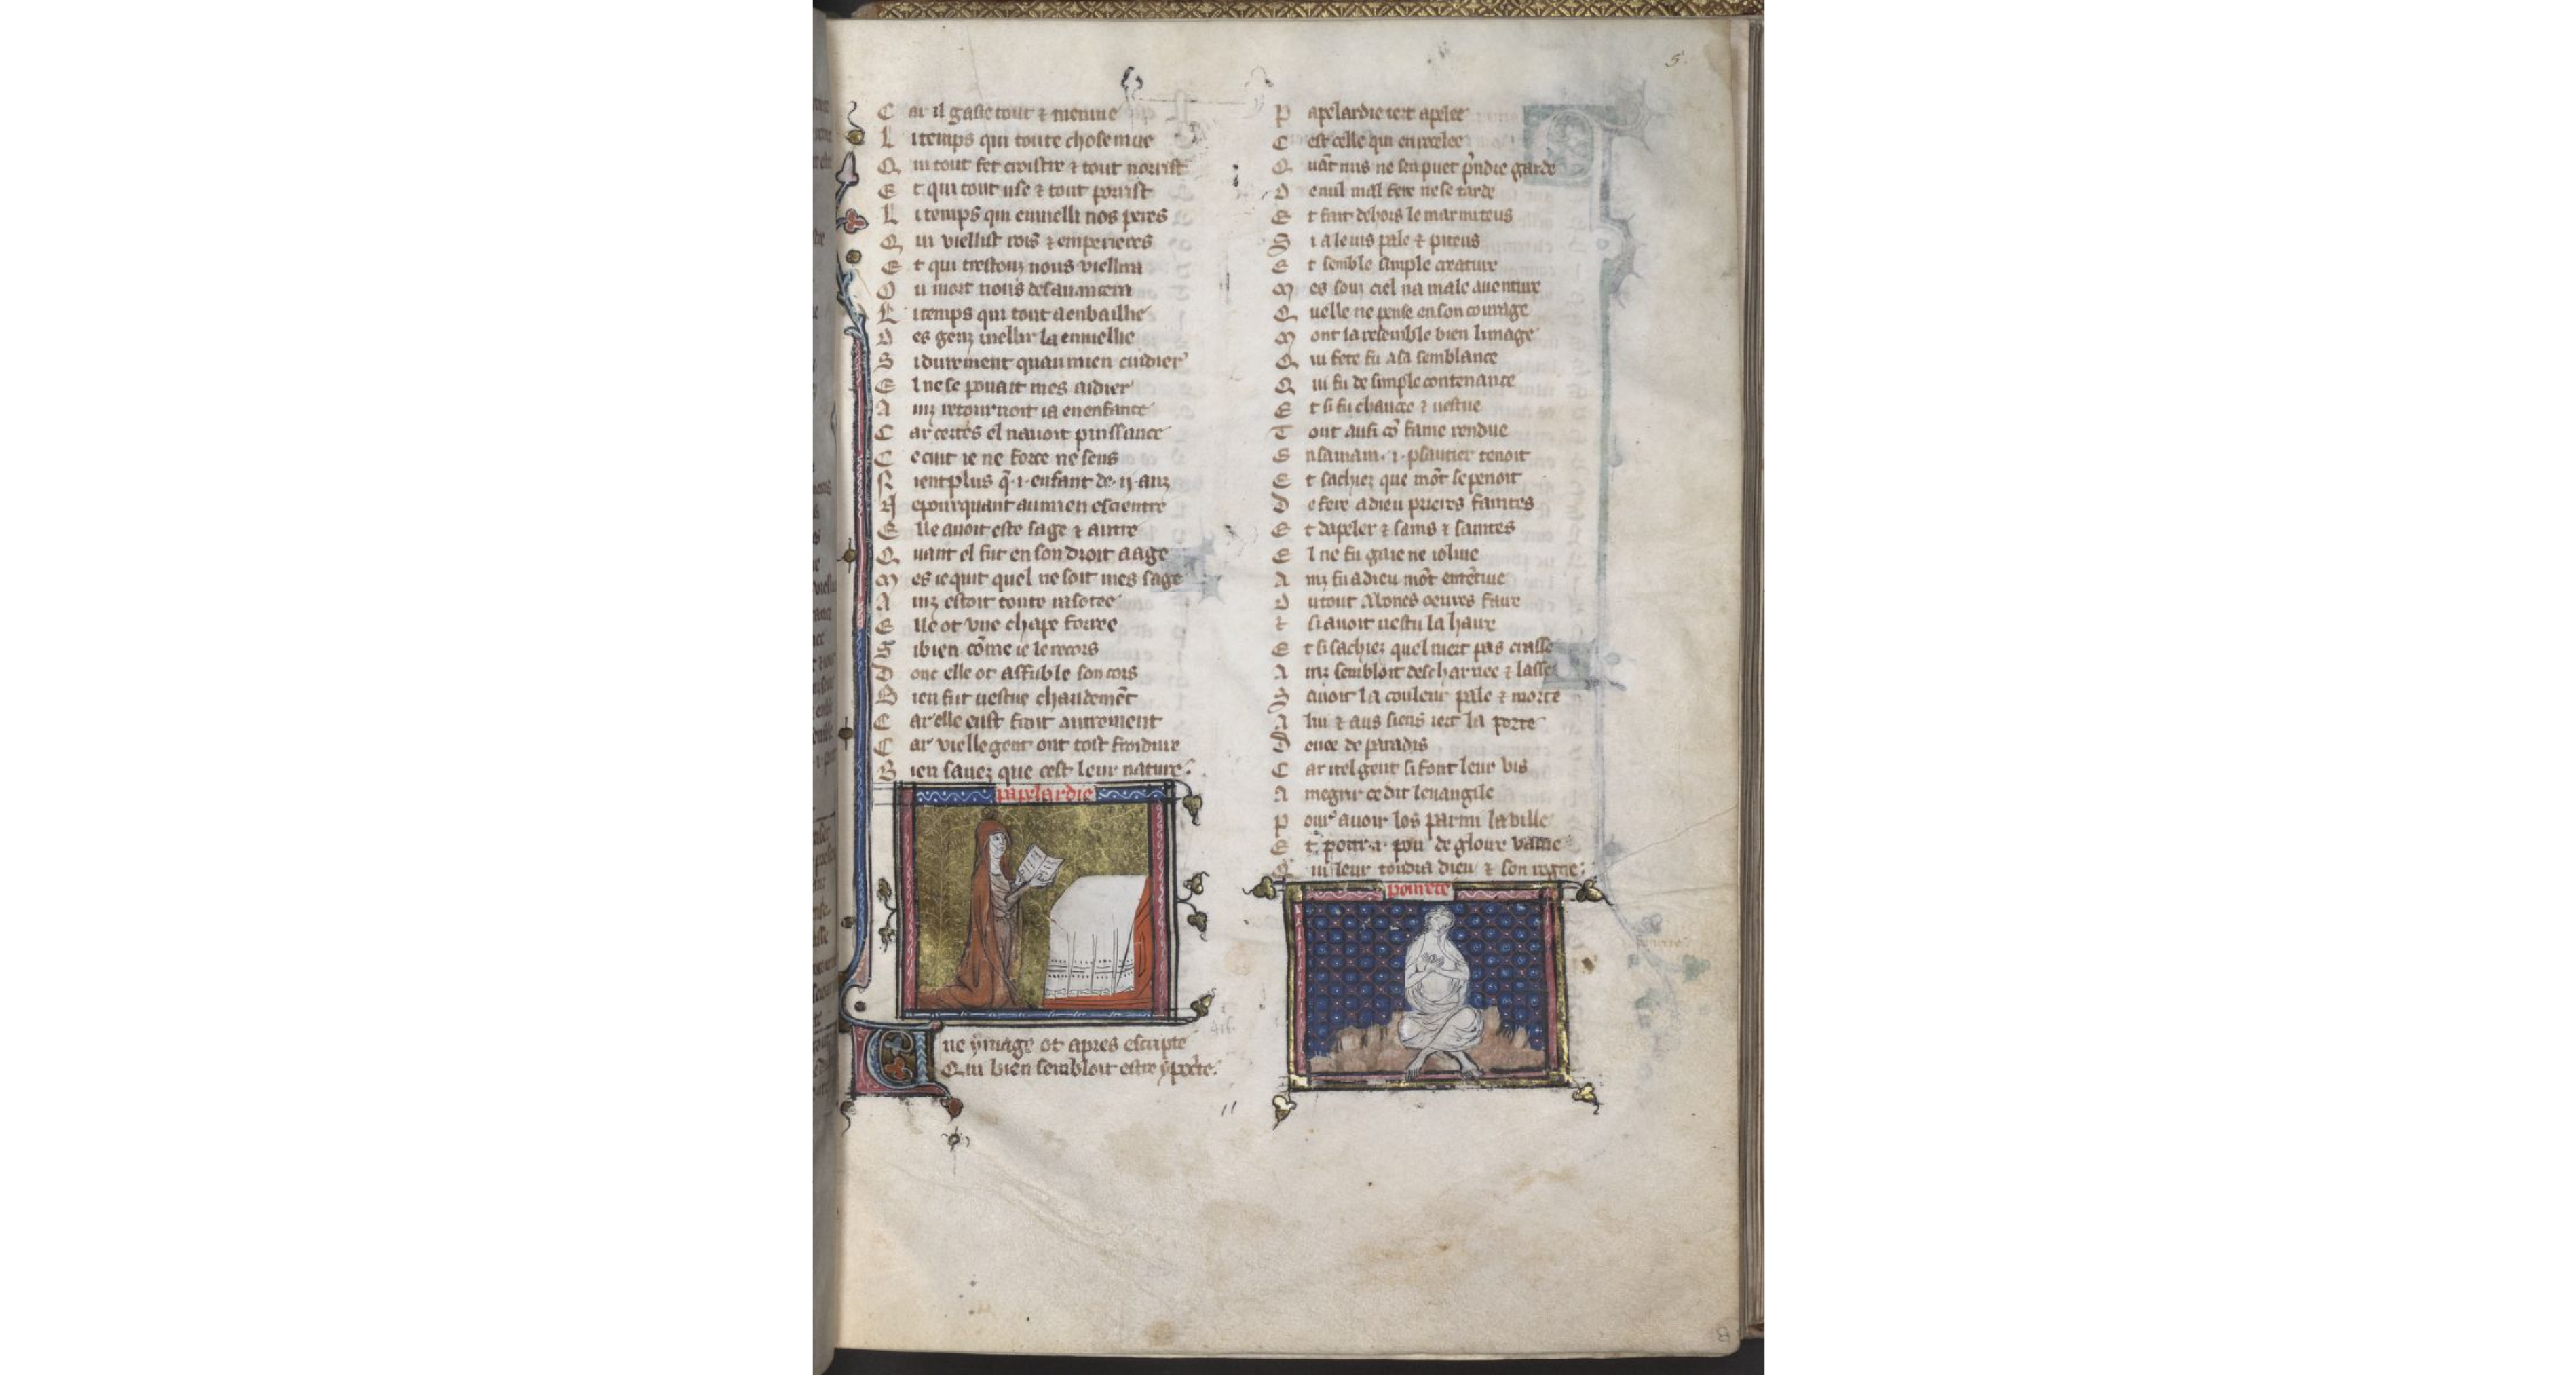 C ar il gaste tout ⁊ meniue
L i temps qui toute chose mue
Q ui tout fet croistre ⁊ tout norrist
E t qui tout use ⁊ tout porrist
L i temps qui enuielli nos peres
Q ui viellist rois ⁊ emperieres
E t qui trestouz nous viellira
O u mort nous desauancera
L i temps qui tout a enbaillie
D es genz viellir la enuiellie
S i durement quau mien cuidier
E l ne se pouait mes aidier
A inz retournoit ia en enfance
C ar certes el nauoit puissance
C e cuit ie ne force ne sens
N ient plus q̃ .i. enfant de .ii. anz
N epourquant au mien escientre
E lle auoit este sage ⁊ entre
Q uant el fut en son droit aage
M es ie quit quel ne soit mes sage
A inz estoit toute rasotee
E lle ot vne chape forree
S i bien cõme ie le recors
D ont elle ot affuble son cors
B ien fut uestue chaudemẽt
C ar elle eust froit autrement
C ar vielle gent ont tost froidure
B ien sauez que cest leur nature
papelardie
U ne ymage ot apres escripte
Q ui bien sembloit estre ypocte
P apelardie iert apelee
C est celle qui en recelee
Q uãt nus ne sen puet p̃ndre garde
D e nul mal fere ne se tarde
E t fait dehors le marmiteus
S i a le uis pale ⁊ piteus
E t semble simple creature
M es souz ciel na male auenture
Q uelle ne pense en son courage
M out la resemble bien limage
Q ui fete fu a sa semblance
Q ui fu de simple contenance
E t si fu chaucee ⁊ uestue
T out ausi cõ fame rendue
E n sa main .i. psautier tenoit
E t sachiez que mõt se penoit
D e fere a dieu prieres faintes
E t dapeler ⁊ sains ⁊ saintes
E l ne fu gaie ne ioliue
A inz fu a dieu mõt ententiue
D u tout a bones oeuures faire
E t si auoit uestu la haire
E t si sachiez quel niert pas crasse
A inz sembloit descharnee ⁊ lasse
S auoit la couleur pale ⁊ morte
A lui ⁊ aus siens iert la porte
D euee de paradis
C ar itel gent si font leur vis
A megrir ce dit leuangile
P our auoir los parmi la ville
E t pour .i. pou de gloire vaine
Q ui leur toudra dieu ⁊ son regne
pourete
5